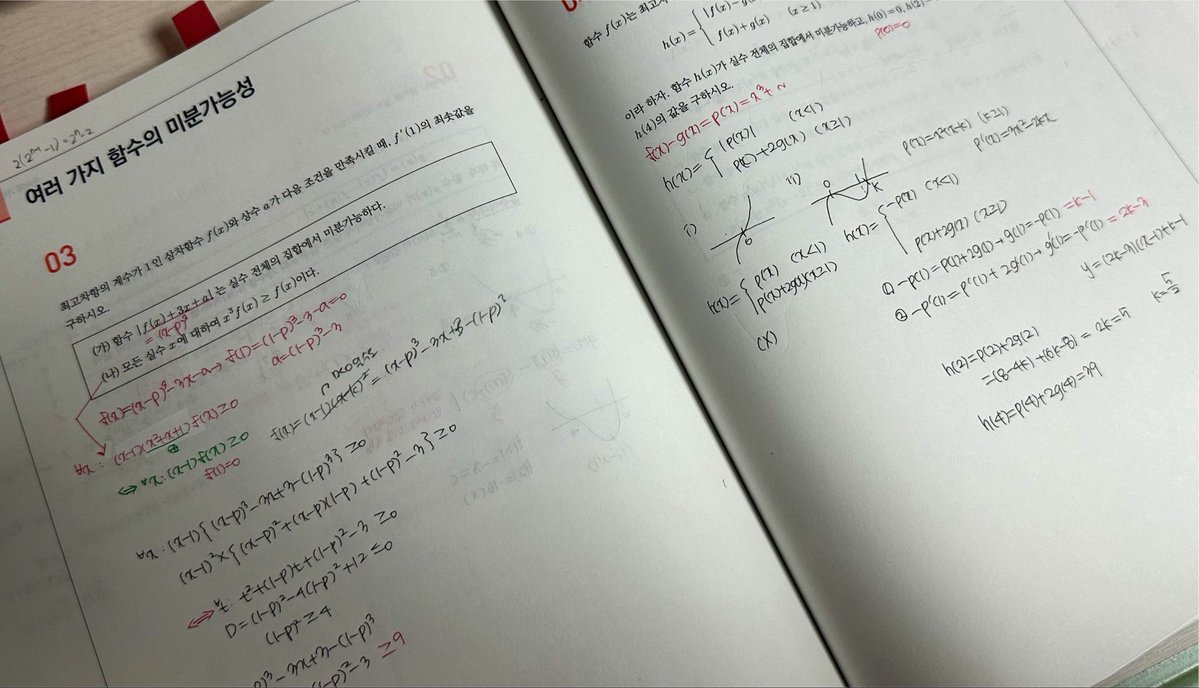 2(2ⁿ⁻¹-1)=2ⁿ-2
여러 가지 함수의 미분가능성
03
최고차항의 계수가 1인 삼차함수 f(x)와 상수 a가 다음 조건을 만족시킬 때, f'(1)의 최솟값을
구하시오.
(가) 함수 |f(x)+3x+a|는 실수 전체의 집합에서 미분가능하다.
=(x-p)³
(나) 모든 실수 x에 대하여 x³f(x) ≥ f(x)이다.
f(x)=(x-p)³-3x-a → f(1)=(1-p)³-3-a=0
a=(1-p)³-3
∀x: (x-1)(x²+x+1)f(x)≥0
⇔ ∀x: (x-1)f(x)≥0
f(1)=0
= (x-p)³-3x+3-(1-p)³
∀x: (x-1){(x-p)³-3x+3-(1-p)³}≥0
(x-1)²×{(x-p)²+(x-p)(1-p)+(1-p)²-3}≥0
⇔ ∀t: t²+(1-p)t+(1-p)²-3≥0
D=(1-p)²-4(1-p)²+12≤0
(1-p)²≥4
)³-3x+3-(1-p)³
(1-p)²-3 ≥9
함수 f(x)는 최고차
h(x)= { |f(x)-g(
f(x)+g(x) (x≥1)
이라 하자. 함수 h(x)가 실수 전체의 집합에서 미분가능하고, h(0)=0, h(2)=
p(0)=0
h(4)의 값을 구하시오.
f(x)-g(x)=p(x)=x³+~
h(x)= { |p(x)| (x<1)
p(x)+2g(x) (x≥1)
i)
0
ii)
0
k
p(x)=x²(x-k) (k≥1)
p'(x)=3x²-2kx
h(x)= { p(x) (x<1)
p(x)+2g(x) (x≥1)
(X)
h(x)= { -p(x) (x<1)
p(x)+2g(x) (x≥1)
① -p(1)=p(1)+2g(1) → g(1)=-p(1) =k-1
② -p'(1)=p'(1)+2g'(1) → g'(1)=-p'(1) =2k-3
y=(2k-3)(x-1)+k-1
h(2)=p(2)+2g(2)
=(8-4k)+(6k-8)=2k=5
k=5/2
h(4)=p(4)+2g(4)=39